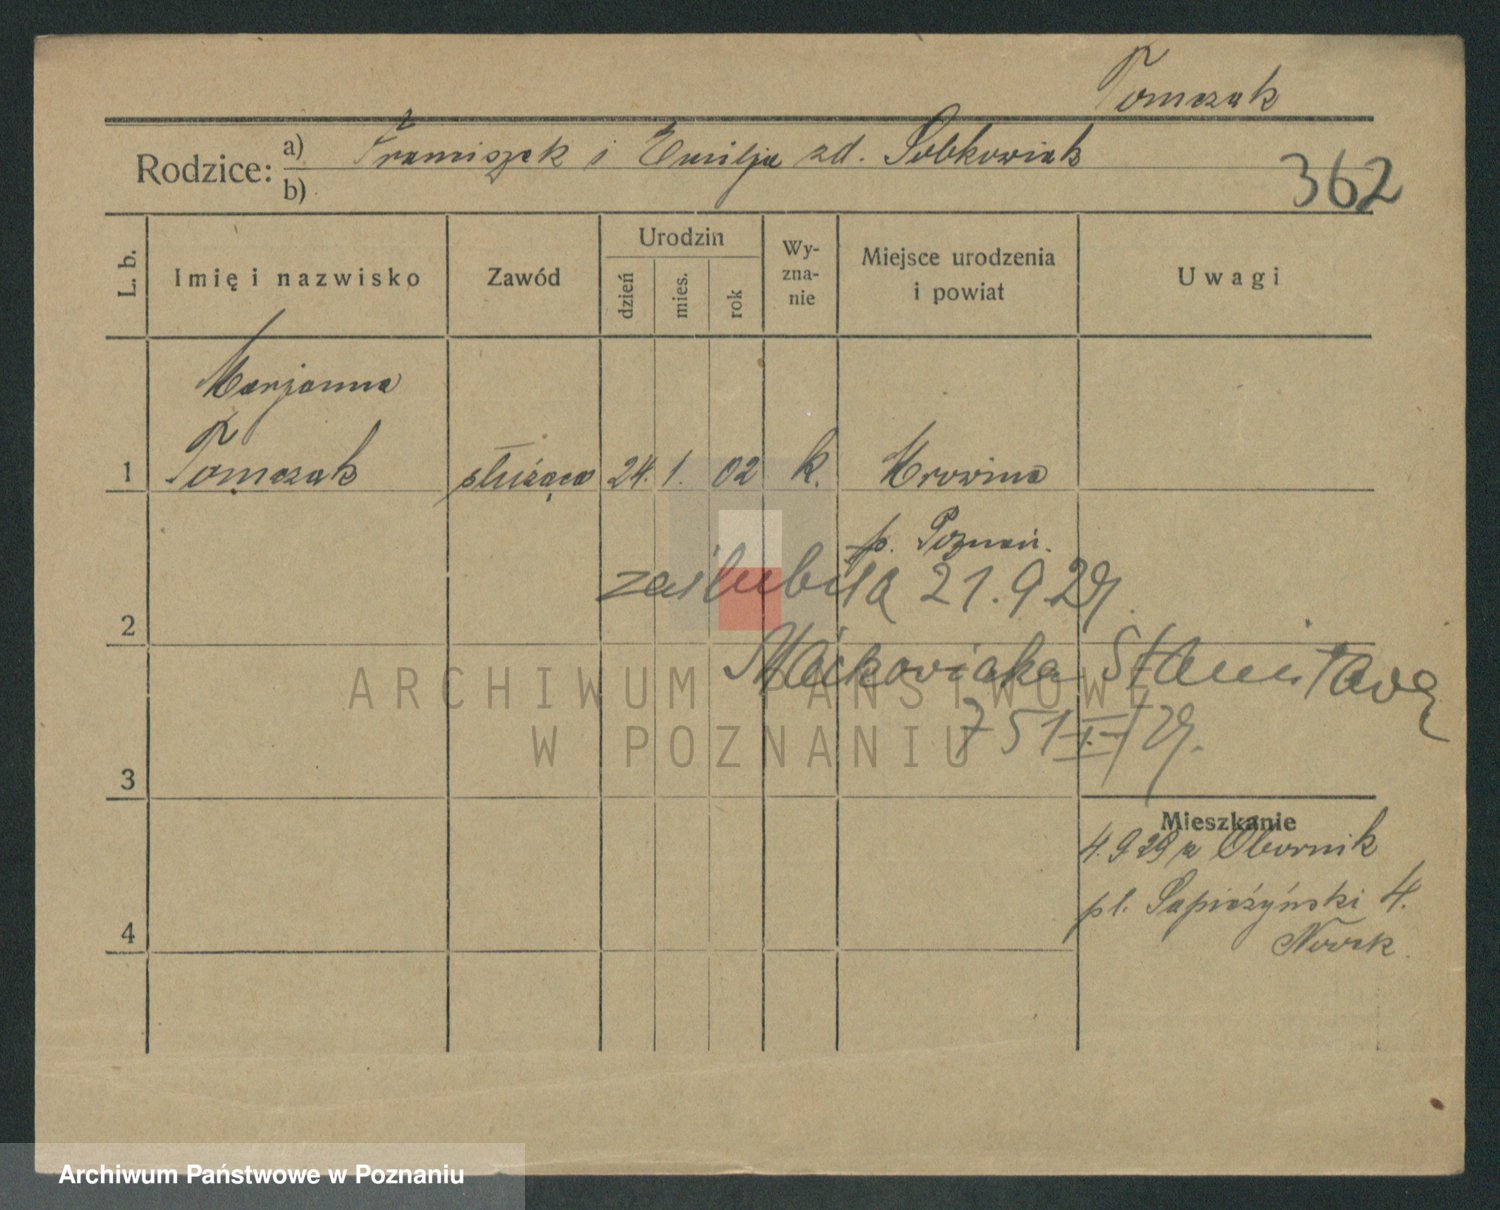 Tomczak
Rodzice: a) Franciszek i Emilja zd. Sobkowiak
b)
362
L. b.
Imię i nazwisko
Zawód
Urodzin
dzień
mies.
rok
Wy-
zna-
nie
Miejsce urodzenia
i powiat
Uwagi
Marjanna
1 Tomczak służąca 24. 1. 02 k. Mrowina
p. Poznań.
zaślubiła 21.9.29.
2
Maćkowiaka Stanisława
ARCHIWUM PAŃSTWOWE
W POZNANIU
751 I/29.
3
Mieszkanie
4.9 29 z Obornik
pl. Sapieżyński 4.
4
Nowak
Archiwum Państwowe w Poznaniu